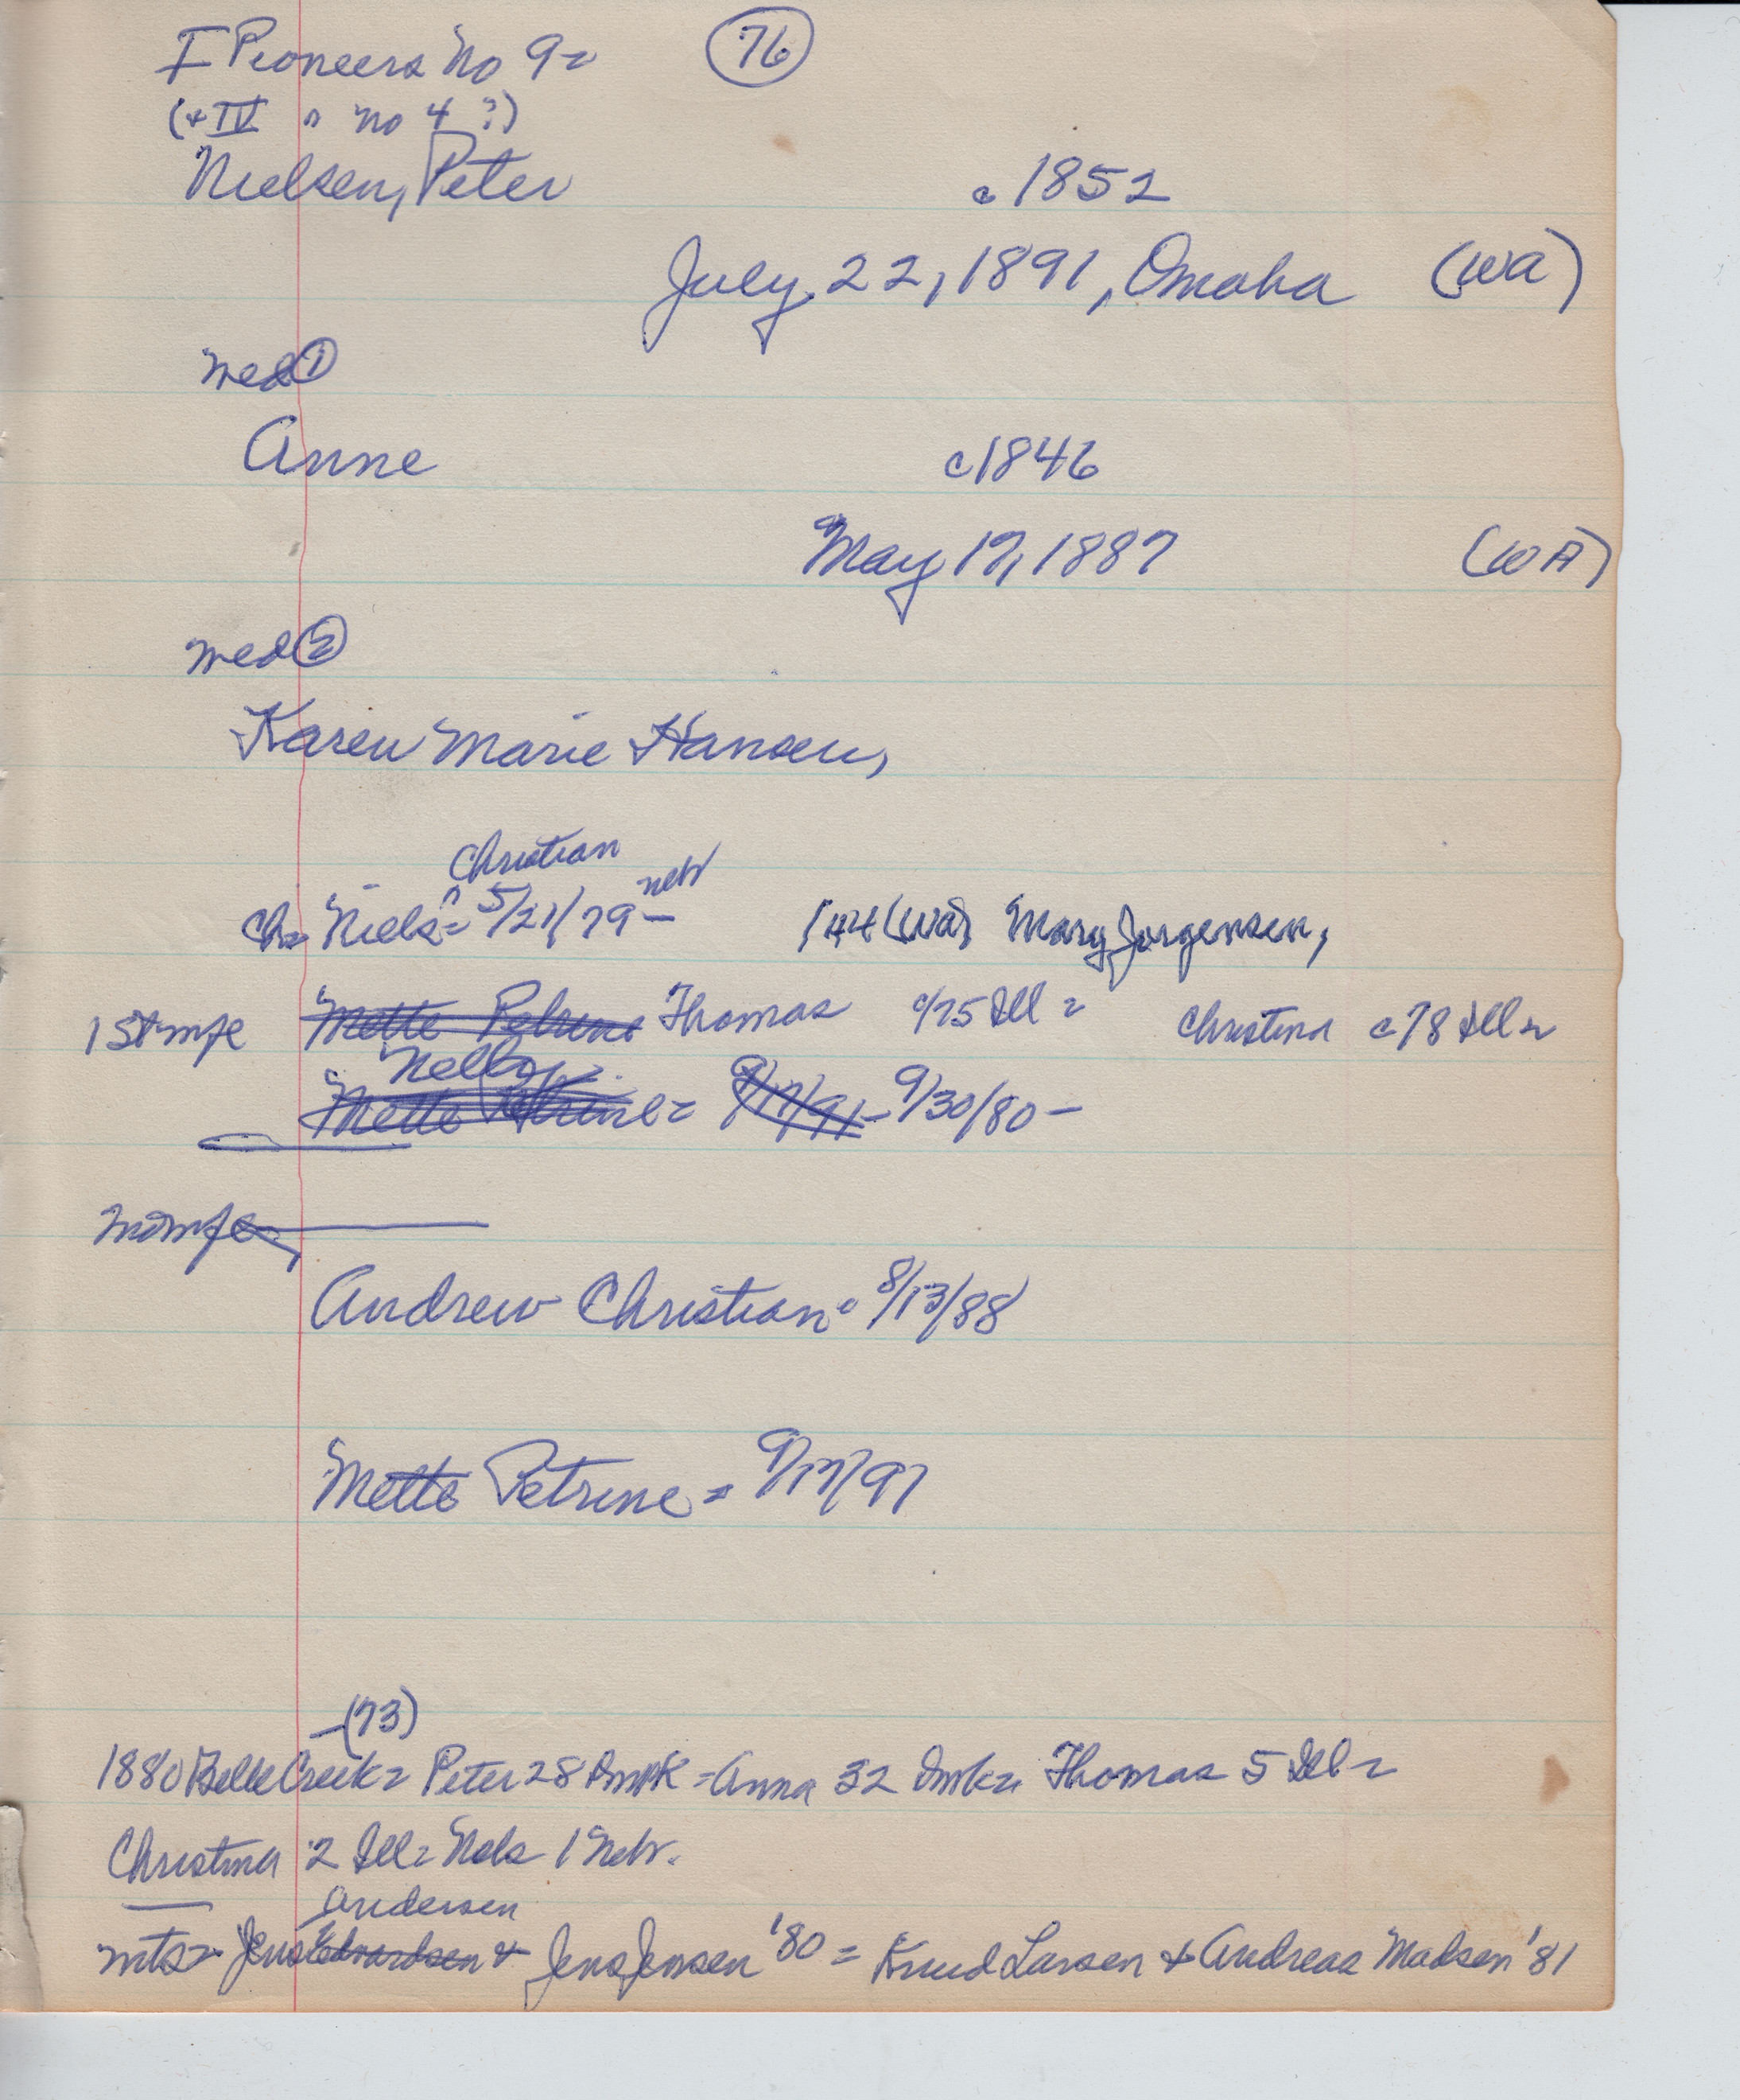 I Pioneers No 9= (76)
(+ IV " no 4 ?)
Nielsen, Peter c 1852
July 22, 1891, Omaha (WA)
med ①
Anne c 1846
May 17, 1887 (WA)
med ②
Karen Marie Hansen,
Christian
Ch= Niels = 5/21/79 - Neb 144 (WA) Mary Jorgensen,
1st mfe Mette Petrine Thomas c/75 Ill = Christina c 78 Ill =
Nelly
Mette Petrine = 9/17/91 - 9/30/80 -
Andrew Christian = 8/13/88
Mette Petrine = 9/17/91
-(73)
1880 Belle Creek = Peter 28 Dmk - Anna 32 Dmk = Thomas 5 Ill =
Christina 2 Ill = Nels 1 Nebr.
Andersen
mts = Jens Edvardsen + Jens Jensen '80 = Knud Larsen + Andreas Madsen '81